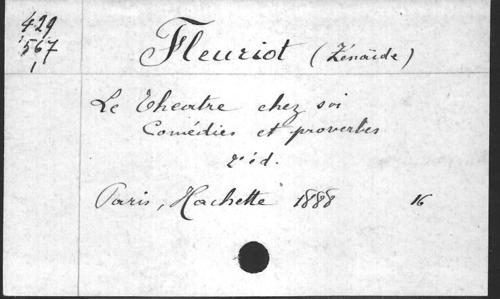 429
567
1
Fleuriot (Zénaïde)
Le Théatre chez soi
Comédies et proverbes
2e éd.
Paris, Hachette 1888 16